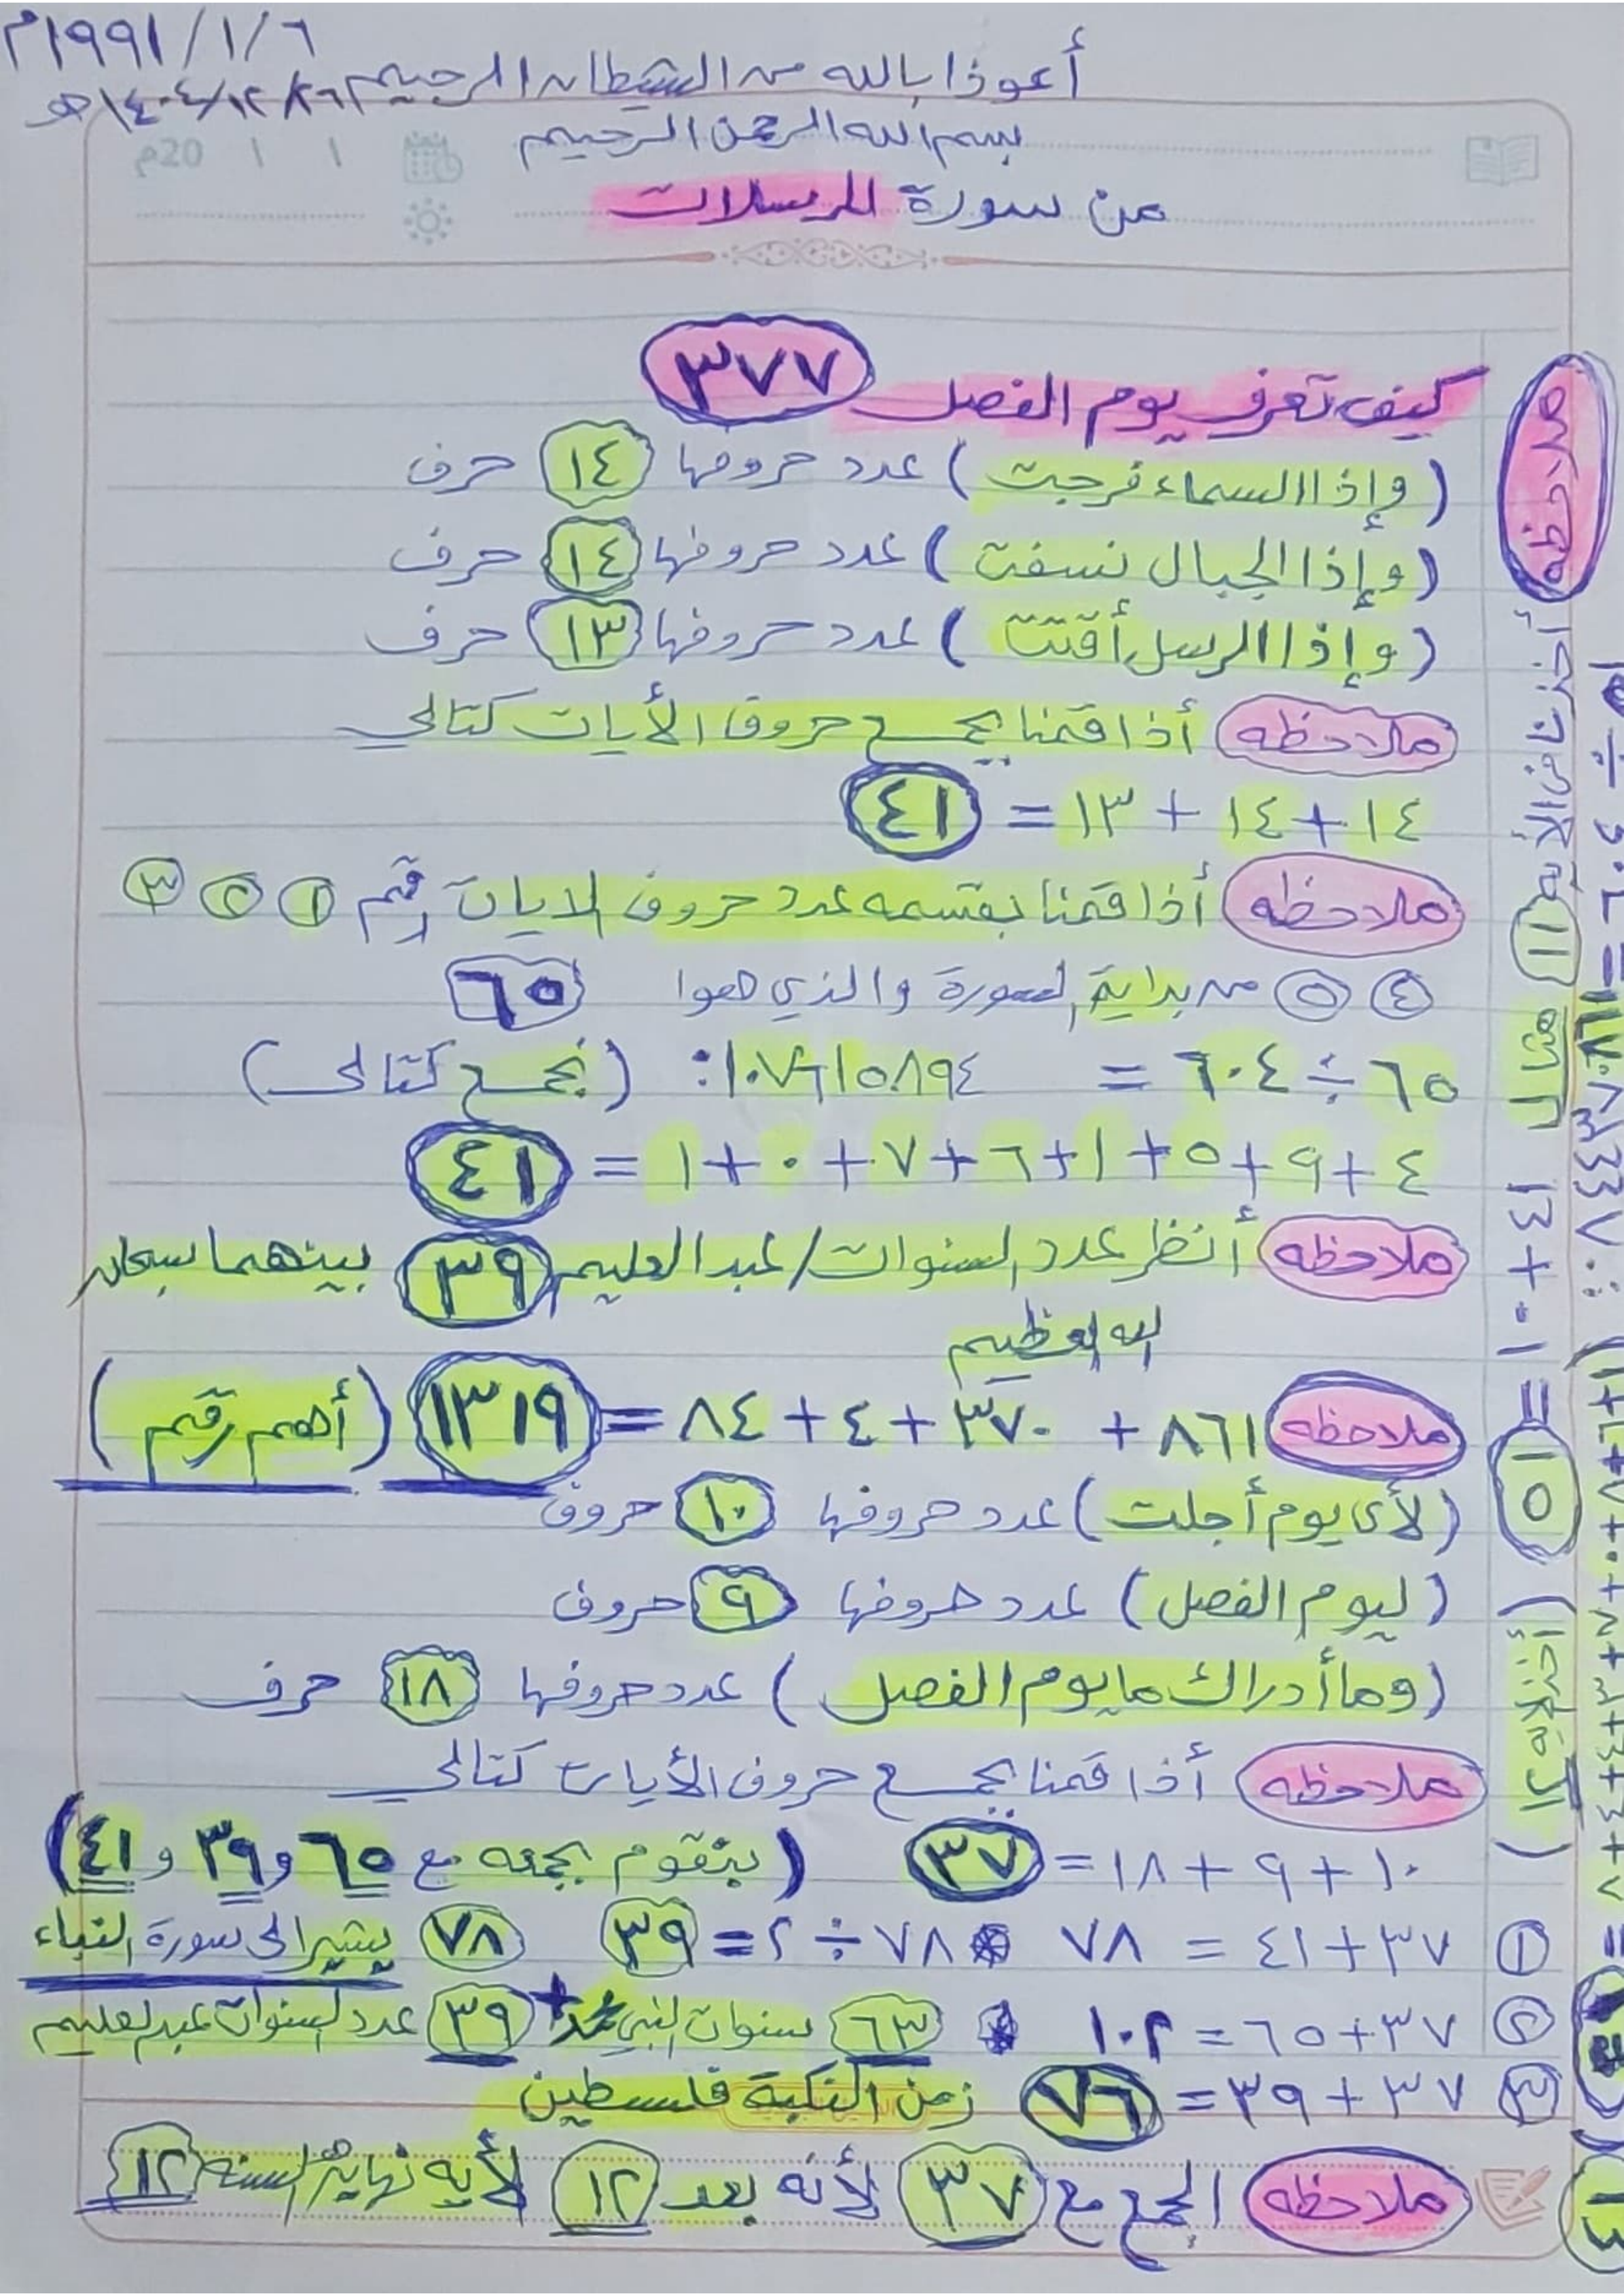 ١٩٩١/١/٦م
أعوذ بالله من الشيطان الرجيم
بسم الله الرحمن الرحيم
20م ١ ١
من سورة المرسلات
كيف تعرف يوم الفصل ٣٧٧
(وإذا السماء فرجت) عدد حروفها ١٤ حرف
(وإذا الجبال نسفت) عدد حروفها ١٤ حرف
(وإذا الرسل أقتت) عدد حروفها ١٣ حرف
ملاحظه أذا قمنا بجمع حروف الأيات كتالي
١٤+١٤+١٣=٤١
ملاحظه أذا قمنا بقسمه عدد حروف الايات رقم ١ ٢ ٣
٤ ٥ من بداية السورة والذي هوا ٦٥
٦٥÷٦٠٤= ١٠٧٦١٥٨٩٤: (نجمع كتالي)
٤+٩+٥+١+٦+٧+٠+١=٤١
ملاحظه أنظر عدد السنوات/عبدالعليم ٣٩ بينهما سبحان
الله العظيم
ملاحظه ٨٦١+٣٧٠+٤+٨٤=١٣١٩ (أهم رقم)
(لأى يوم أجلت) عدد حروفها ١٠ حروف
(ليوم الفصل) عدد حروفها ٩ حروف
(وما أدراك ما يوم الفصل) عدد حروفها ١٨ حرف
ملاحظه أذا قمنا بجمع حروف الأيات كتالي
١٠+٩+١٨=٣٧ (بنقوم بجمعه مع ٦٥ و٣٩ و٤١)
١ ٣٧+٤١=٧٨ ٧٨÷٢=٣٩ ٧٨ يشير الى سورة النباء
٢ ٣٧+٦٥=١٠٢ ٦٣ سنوات النبي محمد + ٣٩ عدد السنوات عبدالعليم
٣ ٣٧+٣٩=٧٦ زمن النكبة فلسطين
ملاحظه الجمع مع ٣٧ لأنه بعد ١٢ لأيه نهاية السنه ١٢
ملاحظه
١١ مثال ١٤+١٠=١٥